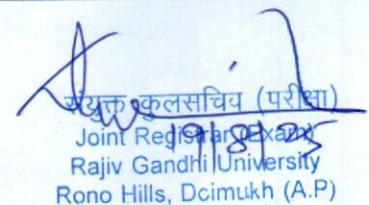 संयुक्त कुलसचिव (परीक्षा)
Joint Registrar (Exam)
19/8/25
Rajiv Gandhi University
Rono Hills, Doimukh (A.P)